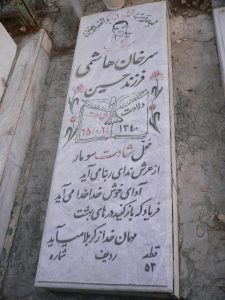 سرخان هاشمی
فرزند حسین
ولادت
شهادت
۱۳۴۰
محل شهادت سومار
از عرش ندای ربنا می آید
آوای خوش خدا خدا می آید
فریاد که باز کنید درهای بهشت
مهمان خدا ز کربلا میآید
قطعه ردیف شماره
۵۳